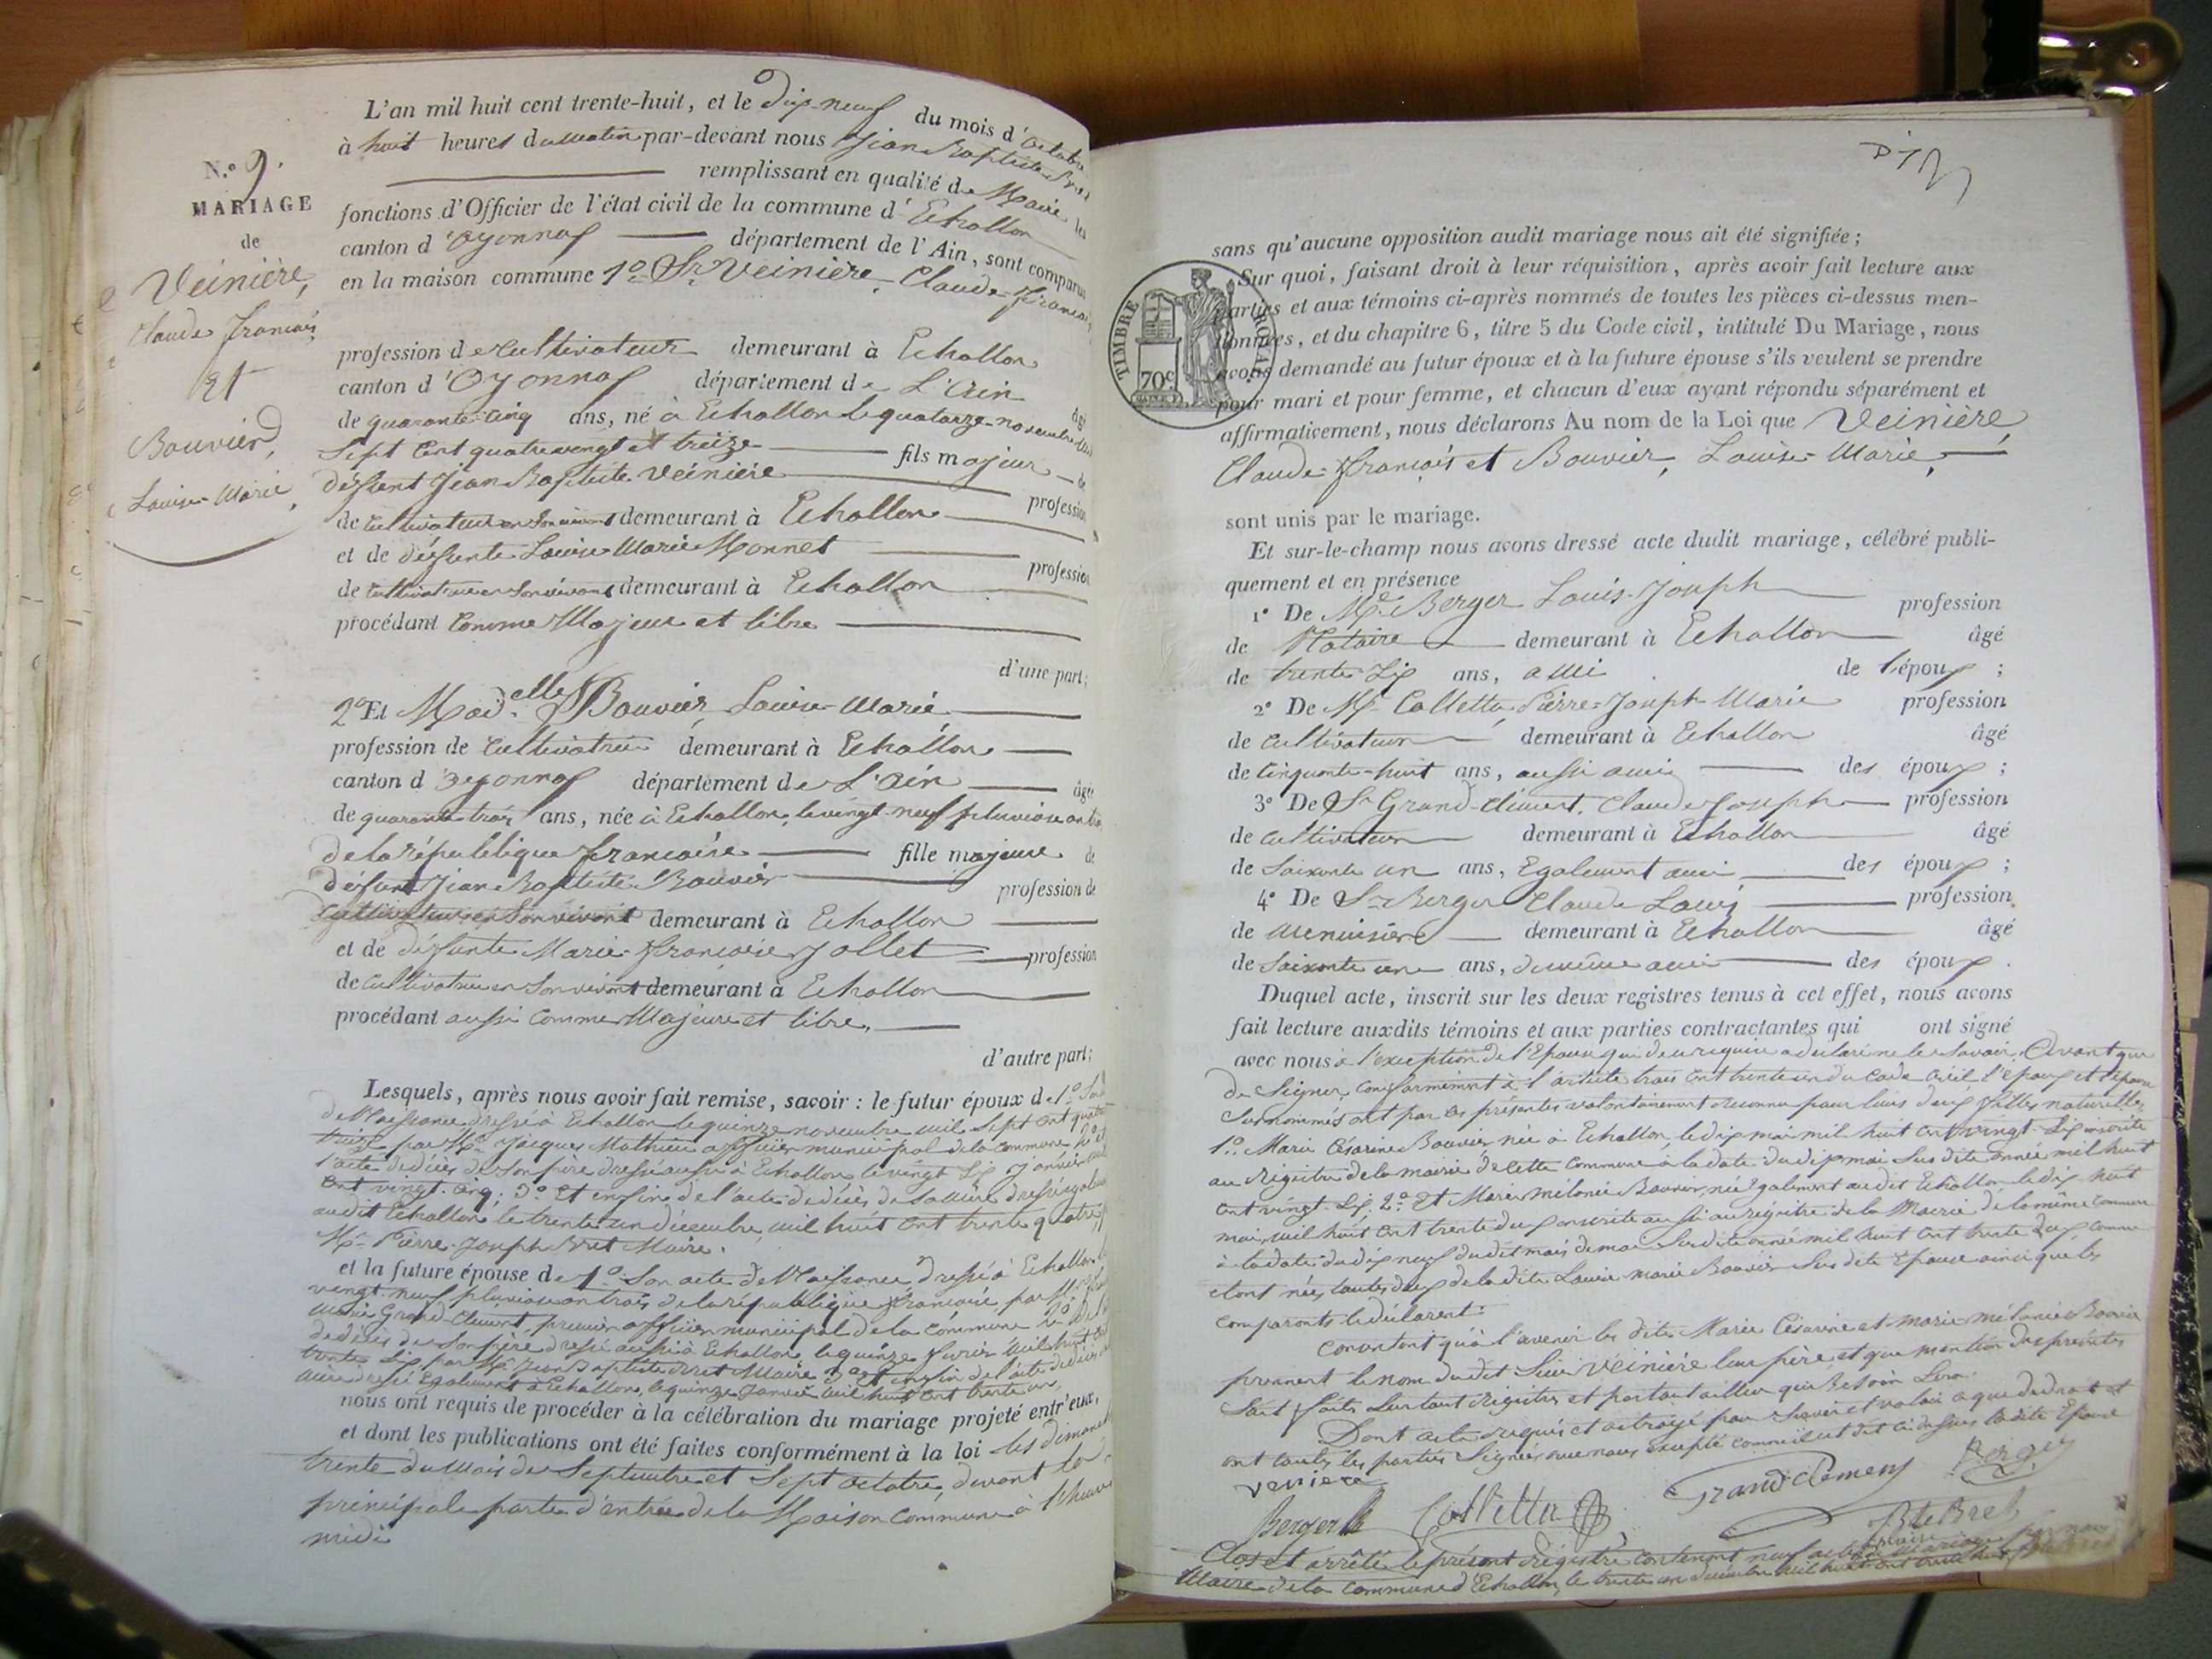 N.º 9.
MARIAGE
de
Veinière,
Claude francois
Et
Bouvier,
Louise-Marie
L'an mil huit cent trente-huit, et le dix-neuf du mois d'octobre
à huit heures du matin par-devant nous Jean Baptiste Bret
remplissant en qualité de Maire les
fonctions d'Officier de l'état civil de la commune d'Echallon
canton d'Oyonnax département de l'Ain, sont comparus
en la maison commune 1º Sr. Veinière, Claude-francois
profession de cultivateur demeurant à Echallon
canton d'Oyonnax département de L'Ain
de quarante-cinq ans, né à Echallon le quatorze novembre âgé
sept cent quatrevingt et treize fils majeur de
défunt Jean Baptiste Veinière profession
de cultivateur en son vivant demeurant à Echallon
et de défunte Louise Marie Monnet profession
de cultivatrice en son vivant demeurant à Echallon
procédant comme Majeur et libre
d'une part;
2º Et Madelle Bouvier, Louise-Marie
profession de cultivatrice demeurant à Echallon
canton d'Oyonnax département de L'Ain âgée
de quarante trois ans, née à Echallon, le vingt-neuf pluviose an trois
de la république francaise fille majeure de
défunt Jean Baptiste Bouvier profession de
cultivateur en son vivant demeurant à Echallon
et de défunte Marie-francoise Jollet profession
de cultivatrice en son vivant demeurant à Echallon
procédant aussi comme Majeure et libre,
d'autre part;
Lesquels, après nous avoir fait remise, savoir: le futur époux de 1º Son
de Naissance dressé à Echallon le quinze novembre mil sept cent quatre
treize par Mr. Jacques Mathieu officier municipal de la commune 2º et
l'acte de décès de son père dressé aussi à Echallon le vingt six janvier
cent vingt-cinq; 3º Et enfin de l'acte de décès de sa mère dressé également
audit Echallon, le trente un décembre mil huit cent trente quatre
Mr. Pierre-Joseph Bret Maire.
et la future épouse de 1º Son acte de Naissance dressé à Echallon le
vingt-neuf pluviose an trois de la république francaise, par Mr.
Marie Grand-Clément, premier officier municipal de la commune 2º De
de décès de son père dressé aussi à Echallon le quinze février mil huit cent
trente six par Mr. Jean Baptiste Bret Maire 3º et enfin de l'acte de décès
mère dressé également à Echallon, le quinze janvier mil huit cent trente un,
nous ont requis de procéder à la célébration du mariage projeté entr'eux,
et dont les publications ont été faites conformément à la loi les dimanches
trente du mois de Septembre et Sept octobre, devant la
principale porte d'entrée de la Maison Commune à l'heure
midi
sans qu'aucune opposition audit mariage nous ait été signifiée;
Sur quoi, faisant droit à leur réquisition, après avoir fait lecture aux
parties et aux témoins ci-après nommés de toutes les pièces ci-dessus men-
tionnées, et du chapitre 6, titre 5 du Code civil, intitulé Du Mariage, nous
avons demandé au futur époux et à la future épouse s'ils veulent se prendre
pour mari et pour femme, et chacun d'eux ayant répondu séparément et
affirmativement, nous déclarons Au nom de la Loi que Veinière,
Claude-francois et Bouvier, Louise-Marie,
TIMBRE ROYAL
70c
sont unis par le mariage.
Et sur-le-champ nous avons dressé acte dudit mariage, célébré publi-
quement et en présence
1º De Me. Berger Louis-Joseph profession
de Notaire demeurant à Echallon âgé
de trente-six ans, ami de l'époux;
2º De Mr. Colletta, Pierre-Joseph-Marie profession
de cultivateur demeurant à Echallon âgé
de cinquante-huit ans, aussi ami des époux;
3º De Sr Grand-Clément, Claude Joseph profession
de cultivateur demeurant à Echallon âgé
de soixante un ans, Egalement ami des époux;
4º De Sr Berger Claude Louis profession
de menuisier demeurant à Echallon âgé
de soixante un ans, de même ami des époux.
Duquel acte, inscrit sur les deux registres tenus à cet effet, nous avons
fait lecture auxdits témoins et aux parties contractantes qui ont signé
avec nous à l'exception de l'Epouse qui de ce requise a déclaré ne le savoir. Avant que
de Signer, conformément à l'article trois cent trente un du Code civil, l'époux et l'épouse
surnommés ont par ces présentes volontairement reconnu pour leurs deux filles naturelles
1º. Marie Césarine Bouvier née à Echallon, le dix mai mil huit cent vingt-six inscrite
au Régistre de la mairie de cette Commune à la date du dix mai Sus dite année mil huit
cent vingt-six, 2º. Et Marie mélanie Bouvier, née également audit Echallon le dix-huit
mai, mil huit cent trente deux inscrite aussi au registre de la Mairie de la même Commune
à la date du dix neuf dudit mois de mai Sus dite année mil huit cent trente deux comme
étant nées toutes deux de la dite Louise marie Bouvier Sus dite Epouse ainsi que les
comparants le déclarent.
Consentent qu'à l'avenir les dites Marie Césarine et marie mélanie Bouvier
prennent le nom dudit Sieur Veinière leur père, et que mention des présentes
soit faite sur tout régistre et partout ailleur que Besoin Sera.
Dont acte requis et octroyé pour Servir et valoir ce que de droit et
ont toutes les parties Signé avec nous excepté comme il est dit ci dessus ladite Epouse
veniere
Berger
Colletta
Grandclement
Berger
Bte Bret
maire
Clos et arrêté le présent Régistre contenant neuf actes de Mariage par nous
Maire de la commune d'Echallon, le trente un décembre mil huit cent trente huit